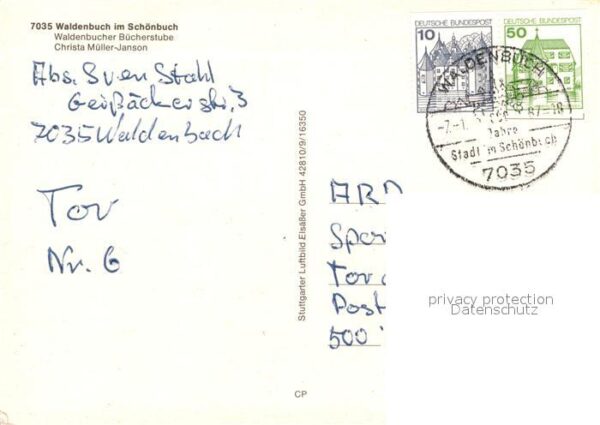 7035 Waldenbuch im Schönbuch
Waldenbucher Bücherstube
Christa Müller-Janson
Abs. Sven Stahl
7035 Waldenbach
Tor
Nr. 6
Stuttgarter Luftbild Elsäßer GmbH 42810/9/16350
CP
DEUTSCHE BUNDESPOST
10
DEUTSCHE BUNDESPOST
50
WALDENBUCH
Jahre
Stadt im Schönbuch
7035
ARD
Spor
Tor
Post
500
privacy protection
Datenschutz